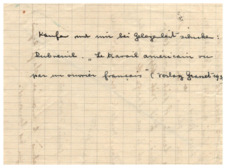 Kaufen und mir bei Gelegenheit schicken:
Dubreuil. „Le travail américain vu
par un ouvrier français" (Verlag Grasset 19